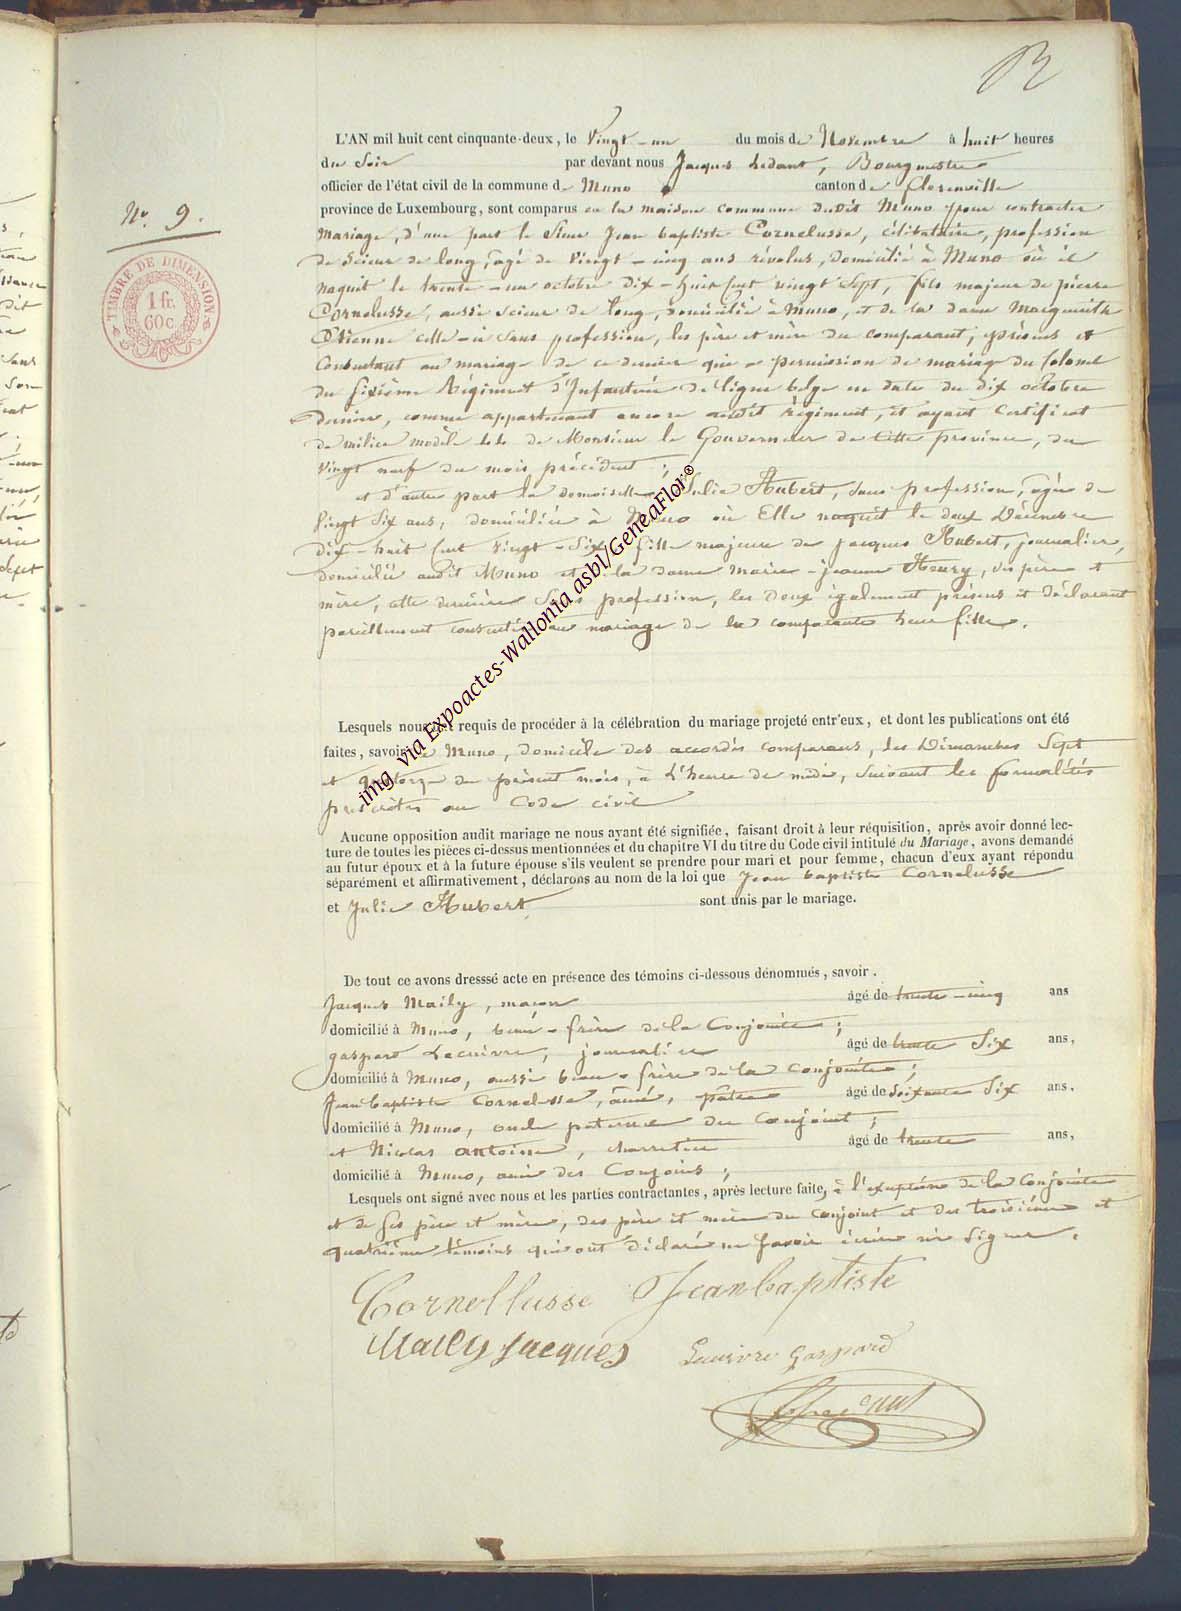 N.º 9.
TIMBRE DE DIMENSION
1 fr.
60 c.
L'AN mil huit cent cinquante-deux, le Vingt-un du mois de Novembre à huit heures
du Soir par devant nous Jacques Ledant, Bourgmestre
officier de l'état civil de la commune de Muno canton de Florenville
province de Luxembourg, sont comparus en la maison commune dudit Muno pour contracter
mariage, d'une part le Sieur Jean baptiste Cornelusse, célibataire, profession
de Scieur de long, agé de Vingt-cinq ans révolus, domicilié à Muno où il
naquit le trente-un octobre dix-huit cent vingt Sept, fils majeur de pierre
Cornelusse, aussi Scieur de long, domicilié à Muno, et de la dame Marguerite
Etienne celle-ci Sans profession, les père et mère du comparant, présens et
Consentant au mariage de ce dernier qui a permission de mariage du Colonel
du Sixième Régiment d'Infanterie de ligne belge en date du dix octobre
dernier, comme appartenant encore audit régiment, et ayant Certificat
de milice modèle de Monsieur le Gouverneur de Cette province, du
Vingt neuf du mois précédent;
et d'autre part la demoiselle Julie Hubert, Sans profession, agée de
Vingt Six ans, domiciliée à Muno où Elle naquit le deux Décembre
dix-huit Cent Vingt-Six, fille majeure de jacques Hubert, journalier,
domicilié audit Muno et de la dame marie-jeanne Henry, Ses père et
mère, cette dernière Sans profession, les deux également présens et déclarant
pareillement consentir au mariage de la comparante leur fille.
Lesquels nous ont requis de procéder à la célébration du mariage projeté entr'eux, et dont les publications ont été
faites, savoir: à Muno, domicile des accordés comparans, les Dimanches Sept
et quatorze du présent mois, à l'heure de midi, Suivant les formalités
prescrites au Code civil
Aucune opposition audit mariage ne nous ayant été signifiée, faisant droit à leur réquisition, après avoir donné lec-
ture de toutes les pièces ci-dessus mentionnées et du chapitre VI du titre du Code civil intitulé du Mariage, avons demandé
au futur époux et à la future épouse s'ils veulent se prendre pour mari et pour femme, chacun d'eux ayant répondu
séparément et affirmativement, déclarons au nom de la loi que Jean baptiste Cornelusse
et Julie Hubert sont unis par le mariage.
De tout ce avons dresssé acte en présence des témoins ci-dessous dénommés, savoir.
Jacques Maily, maçon âgé de trente-cinq ans
domicilié à Muno, beau-frère de la Conjointe;
gaspard Lecuivre, journalier âgé de trente Six ans,
domicilié à Muno, aussi beau-frère de la Conjointe;
Jean baptiste Cornelusse, ainé, pâtre âgé de Soixante Six ans,
domicilié à Muno, oncle paternel du Conjoint;
et Nicolas Antoine, charretier âgé de trente ans,
domicilié à Muno, ami des Conjoins;
Lesquels ont signé avec nous et les parties contractantes, après lecture faite, à l'exception de la Conjointe
et de Ses père et mère, des père et mère du Conjoint et des troisième et
quatrième témoins qui ont déclaré ne Savoir écrire ni Signer.
Cornellusse Jean baptiste
Maily jacques Lecuivre Gaspard
img via Expoactes-Wallonia asbl/GeneaFlor®